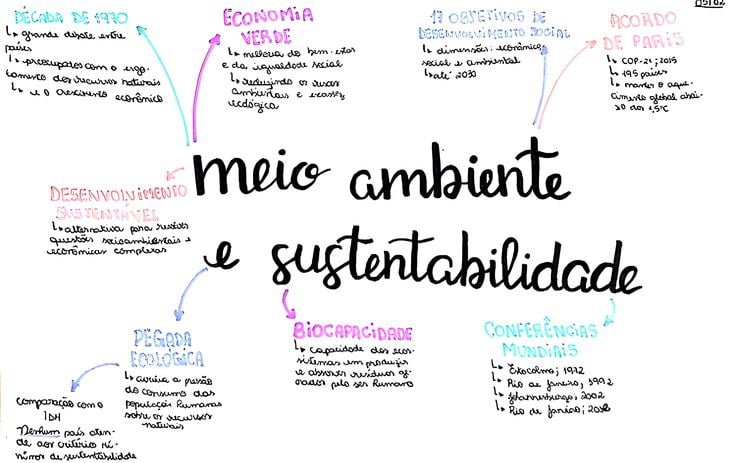 05/02
DÉCADA DE 1970
↳ grande debate entre
países
↳ preocupados com o esgo-
tamento dos recursos naturais
↳ e o crescimento econômico
ECONOMIA
VERDE
↳ melhoria do bem-estar
e da igualdade social
↳ reduzindo os riscos
ambientais e escassez
ecológica
17 OBJETIVOS DE
DESENVOLVIMENTO SOCIAL
↳ dimensões: econômica,
social e ambiental
↳ até 2030
ACORDO
DE PARIS
↳ COP-21; 2015
↳ 195 países
↳ manter o aque-
cimento global abai-
xo dos 1,5°C
meio ambiente
e sustentabilidade
DESENVOLVIMENTO
SUSTENTÁVEL
↳ alternativa para
questões socioambientais e
econômicas complexas
PEGADA
ECOLÓGICA
↳ avalia a pressão
do consumo das
populações humanas
sobre os recursos
naturais
comparação com o
IDH
Nenhum país aten-
de aos critérios mí-
nimos de sustentabilidade
BIOCAPACIDADE
↳ capacidade dos ecos-
sistemas em produzir
e absorver resíduos ge-
rados pelo ser humano
CONFERÊNCIAS
MUNDIAIS
↳ Estocolmo; 1972
↳ Rio de Janeiro; 1992
↳ Johannesburgo; 2002
↳ Rio de Janeiro;